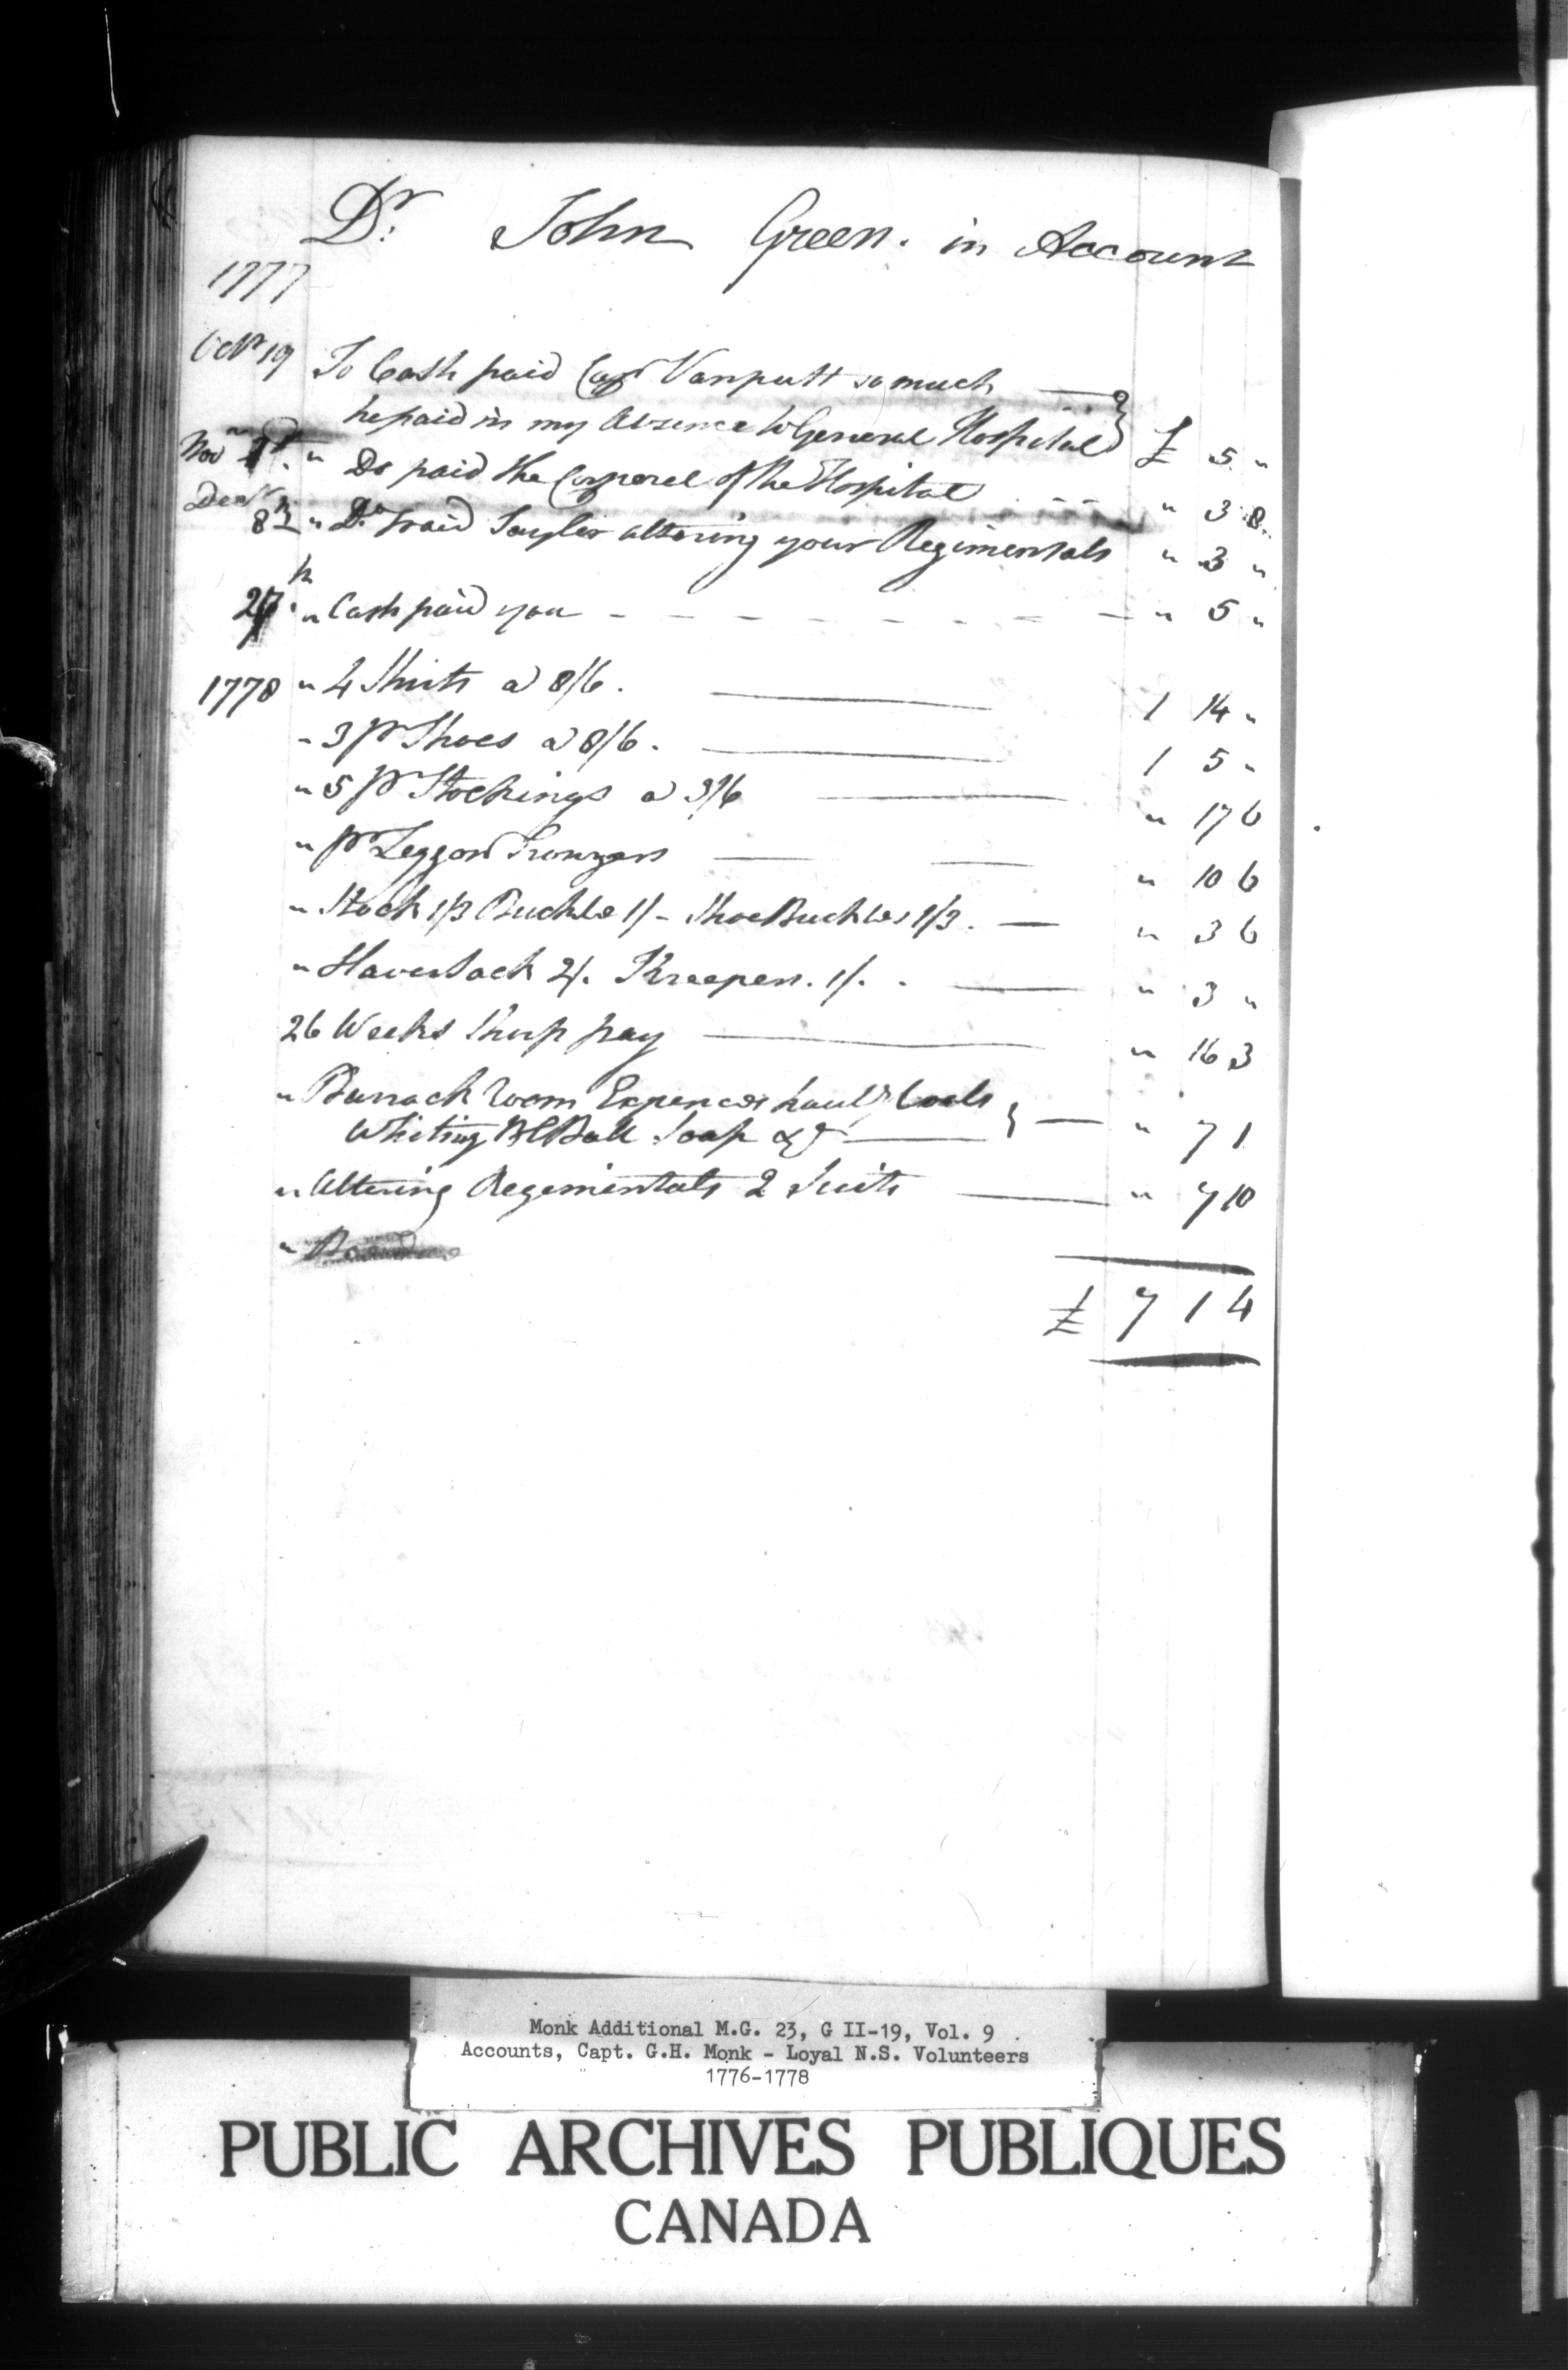 Dr. John Green. in Account
1777
Octr 19 To Cash paid Capt Vanputt so much
he paid in my Absence to General Hospital £ 5 "
Novr 1st. " Do paid the Corporel of the Hospital " 3 8
Decr 8th " Do paid Taylor altering your Regimentals " 3 "
27h. " Cash paid you " 5 "
1778 " 4 Shirts a 8/6. 1 14 "
" 3 pr Shoes a 8/6. 1 5 "
" 5 pr Stockings a 3/6 " 17 6
" pr Leggond Trowzers " 10 6
" Stock 1/3 Buckle 1/- Shoe Buckles 1/3. " 3 6
" Haversack 2/. Kreepers. 1/. " 3 "
26 Weeks Shirp pay " 16 3
" Barrack room Expences haulg Coals
Whiting Bl Ball Soap &c " 7 1
" Altering Regementals 2 Suits " 7 10
£ 7 1 4
Monk Additional M.G. 23, G II-19, Vol. 9
Accounts, Capt. G.H. Monk - Loyal N.S. Volunteers
1776-1778
PUBLIC ARCHIVES PUBLIQUES
CANADA